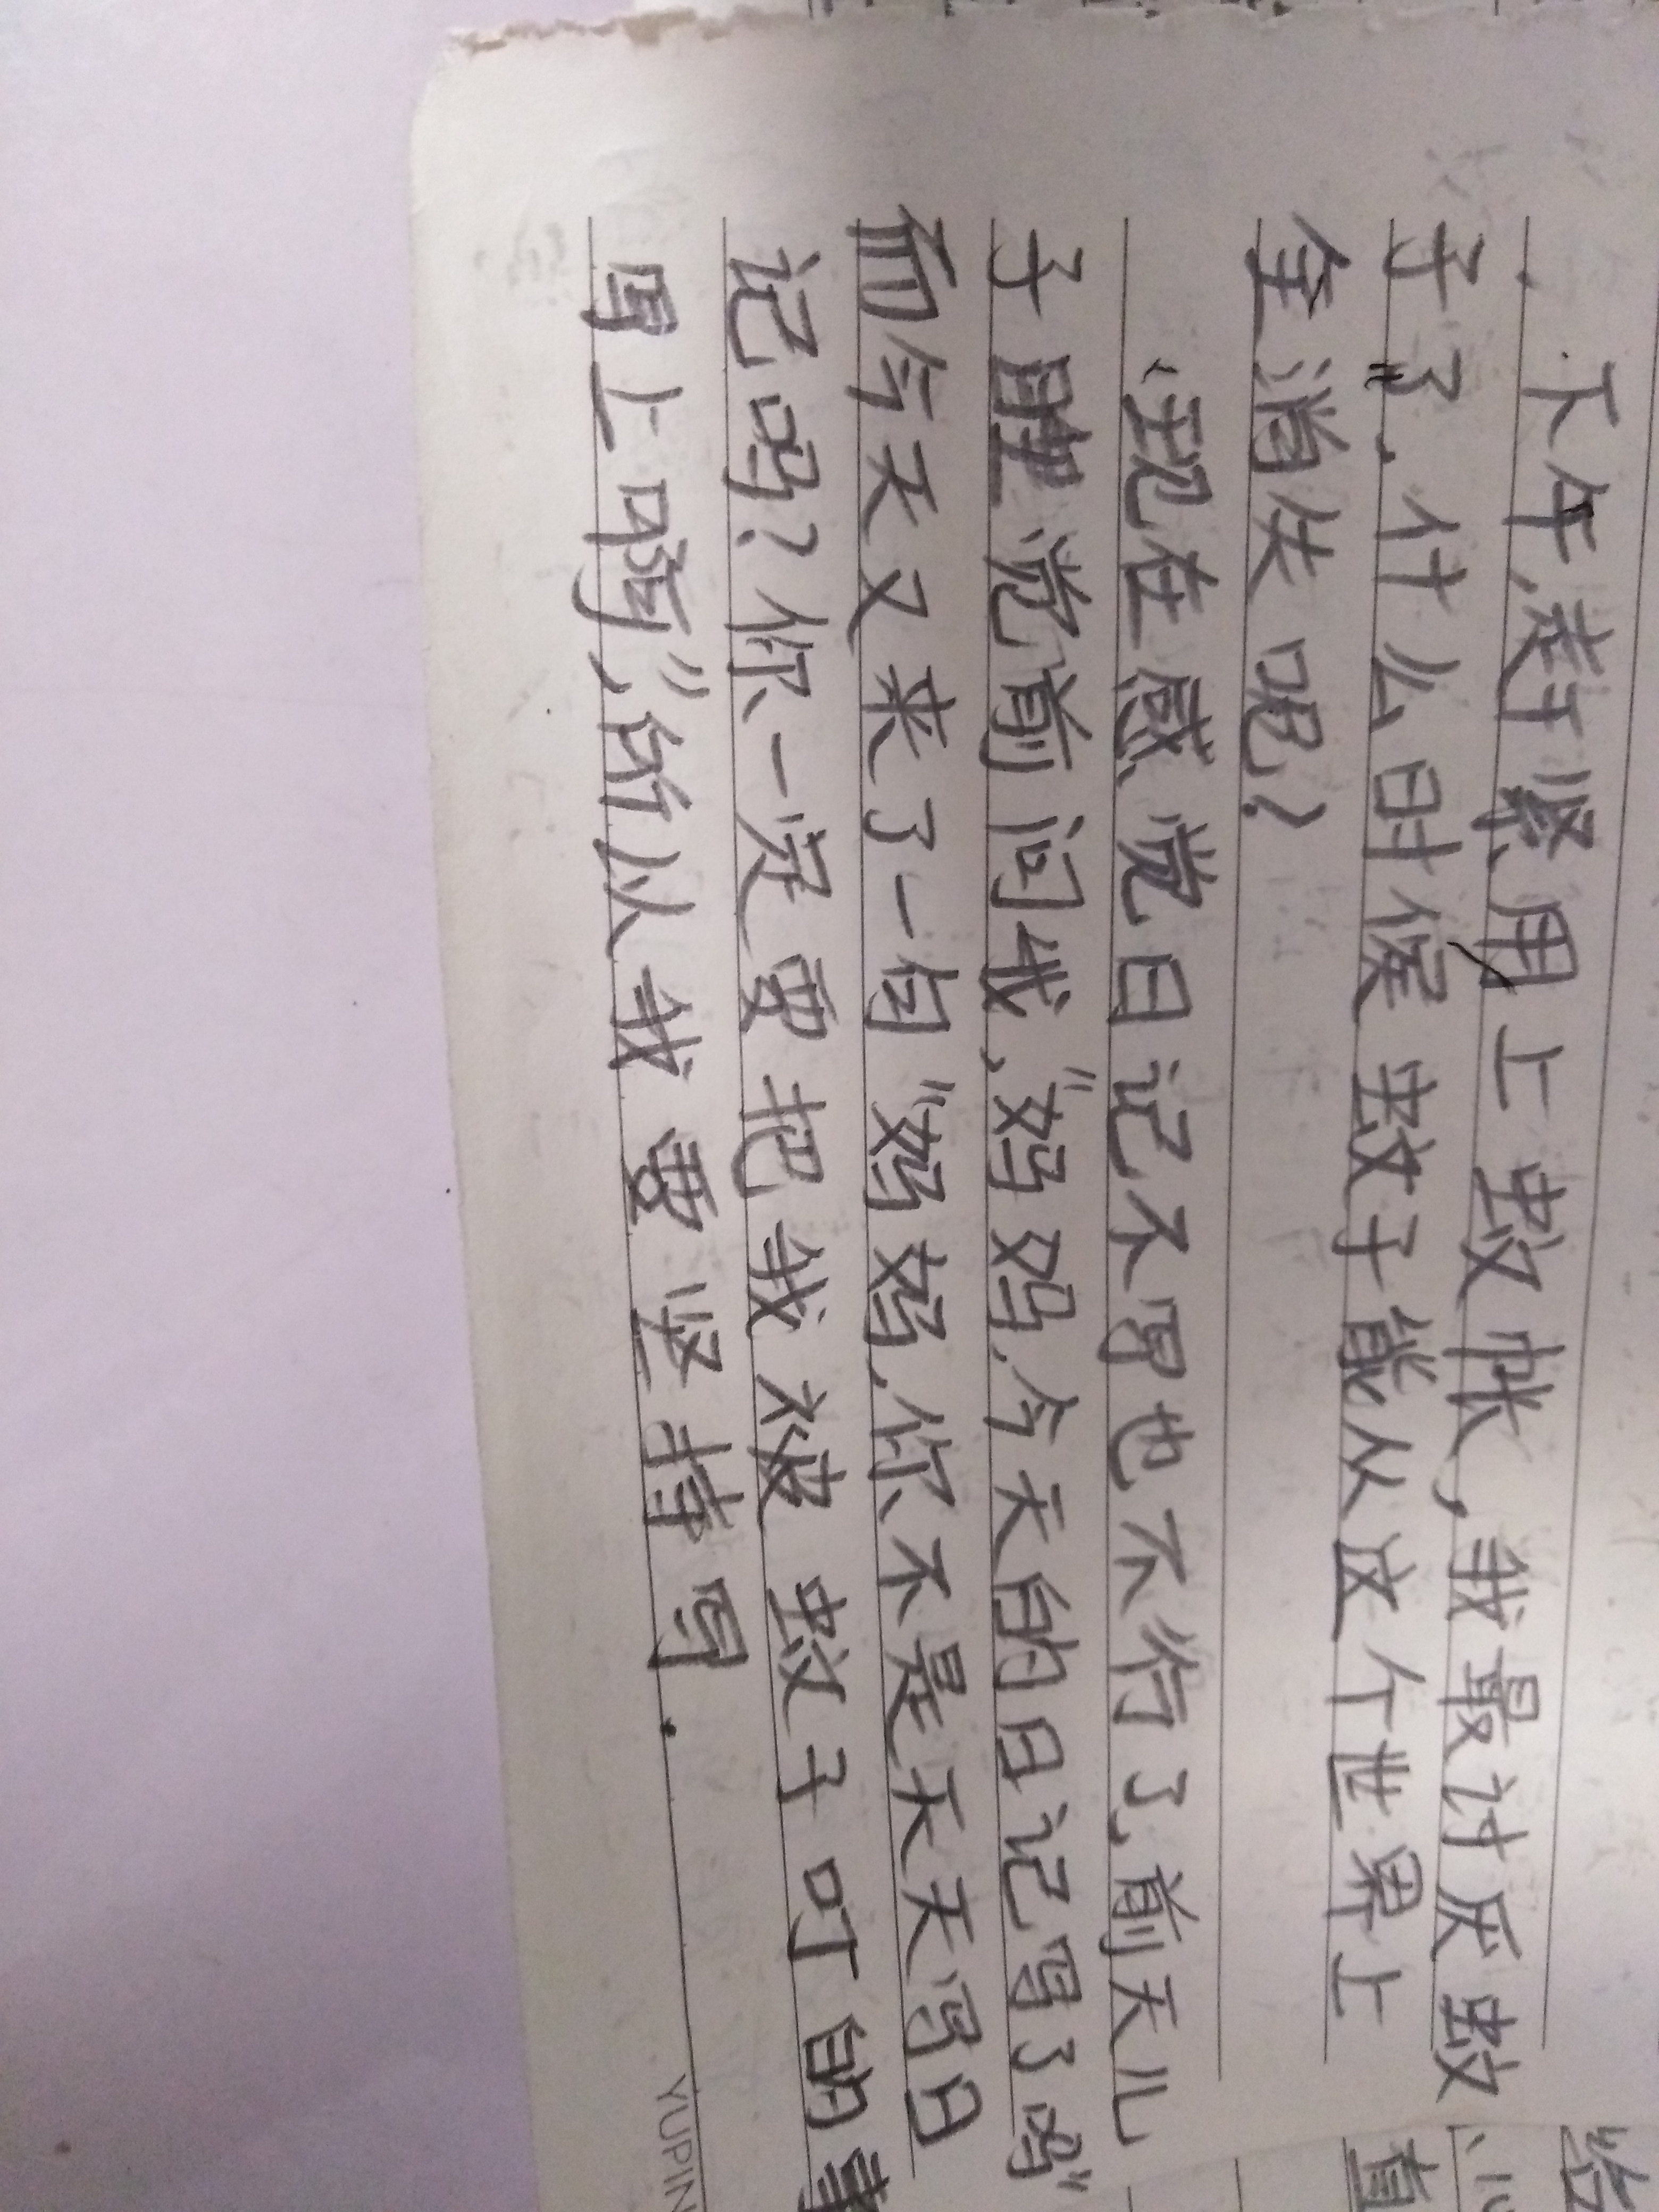 下午,赶紧用上蚊帐,我最讨厌蚊
子了,什么时候蚊子能从这个世界上
全消失呢?
现在感觉日记不写也不行了,前天儿
子睡觉前问我,"妈妈,今天的日记写了吗"
而今天又来了一句"妈妈,你不是天天写日
记吗?你一定要把我被蚊子叮的事
写上啊",所以我要坚持写.
YUPIN